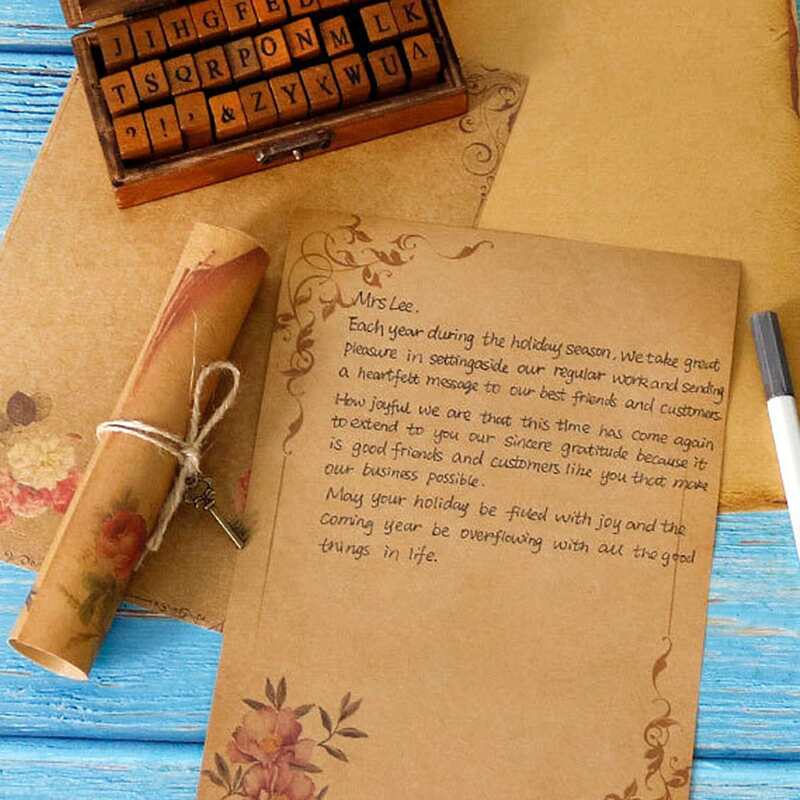 J I H G F E D
T S Q R P O N M L K
? ! , & Z Y X W U A
Mrs Lee.
Each year during the holiday season, We take great
pleasure in settingaside our regular work and sending
a heartfelt message to our best friends and custumers.
How joyful we are that this time has come again
to extend to you our sincere gratitude because it
is good friends and customers like you that make
our business possible.
May your holiday be filled with joy and the
coming year be overflowing with all the good
things in life.